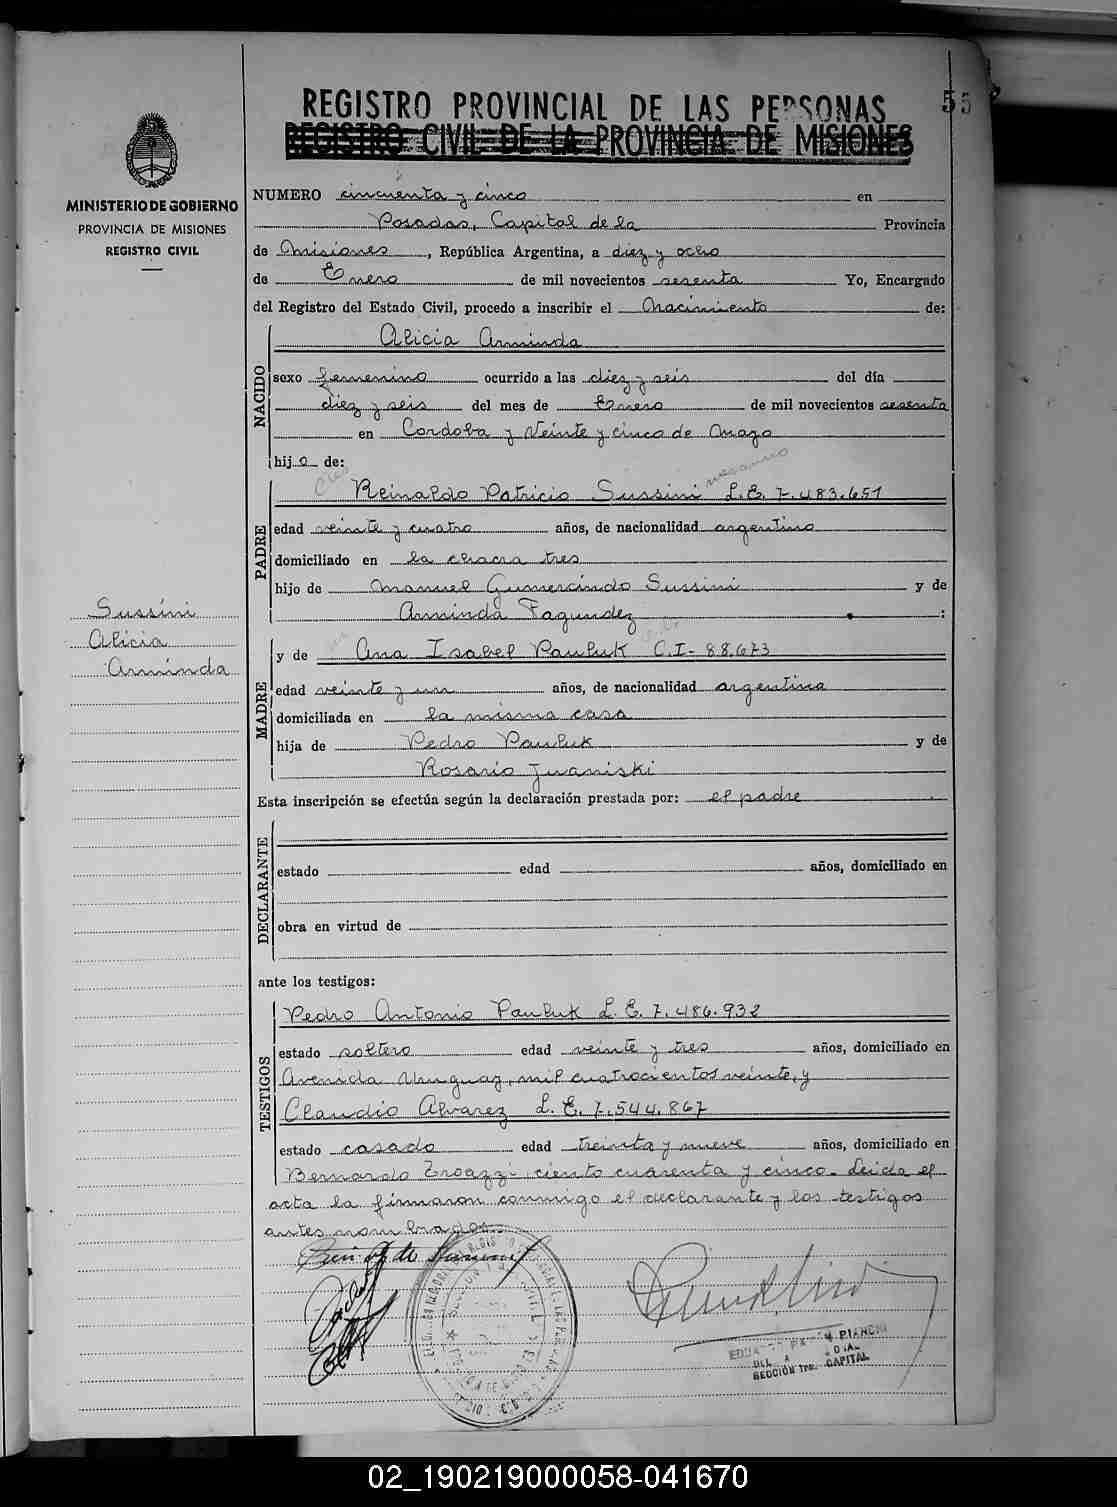 REGISTRO PROVINCIAL DE LAS PERSONAS
55
REGISTRO CIVIL DE LA PROVINCIA DE MISIONES
MINISTERIO DE GOBIERNO
PROVINCIA DE MISIONES
REGISTRO CIVIL
NUMERO cincuenta y cinco en
Posadas, Capital de la Provincia
de Misiones, República Argentina, a diez y ocho
de Enero de mil novecientos sesenta Yo, Encargado
del Registro del Estado Civil, procedo a inscribir el Nacimiento de:
NACIDO
Alicia Arminda
sexo femenino ocurrido a las diez y seis del día
diez y seis del mes de Enero de mil novecientos sesenta
en Cordoba y Veinte y cinco de Mayo
hija de:
PADRE
Reinaldo Patricio Sussini L.E. 7.483.651
edad veinte y cuatro años, de nacionalidad argentino
domiciliado en la chacra tres
hijo de Manuel Gumercindo Sussini y de
Arminda Fagundez :
Sussini
Alicia
Arminda
MADRE
y de Ana Isabel Pauluk C.I- 88.673
edad veinte y un años, de nacionalidad argentina
domiciliada en la misma casa
hija de Pedro Pauluk y de
Rosario Juaniski
Esta inscripción se efectúa según la declaración prestada por: el padre
DECLARANTE
estado edad años, domiciliado en
obra en virtud de
ante los testigos:
TESTIGOS
Pedro Antonio Pauluk L.E. 7.486.932
estado soltero edad veinte y tres años, domiciliado en
Avenida Uruguay, mil cuatrocientos veinte, y
Claudio Alvarez L.E. 7.544.867
estado casado edad treinta y nueve años, domiciliado en
Bernardo ciento cuarenta y cinco. Leida el
acta la firmaron conmigo el declarante y los testigos
antes nombrados.
SECCION 1ra. CAPITAL
02_190219000058-041670